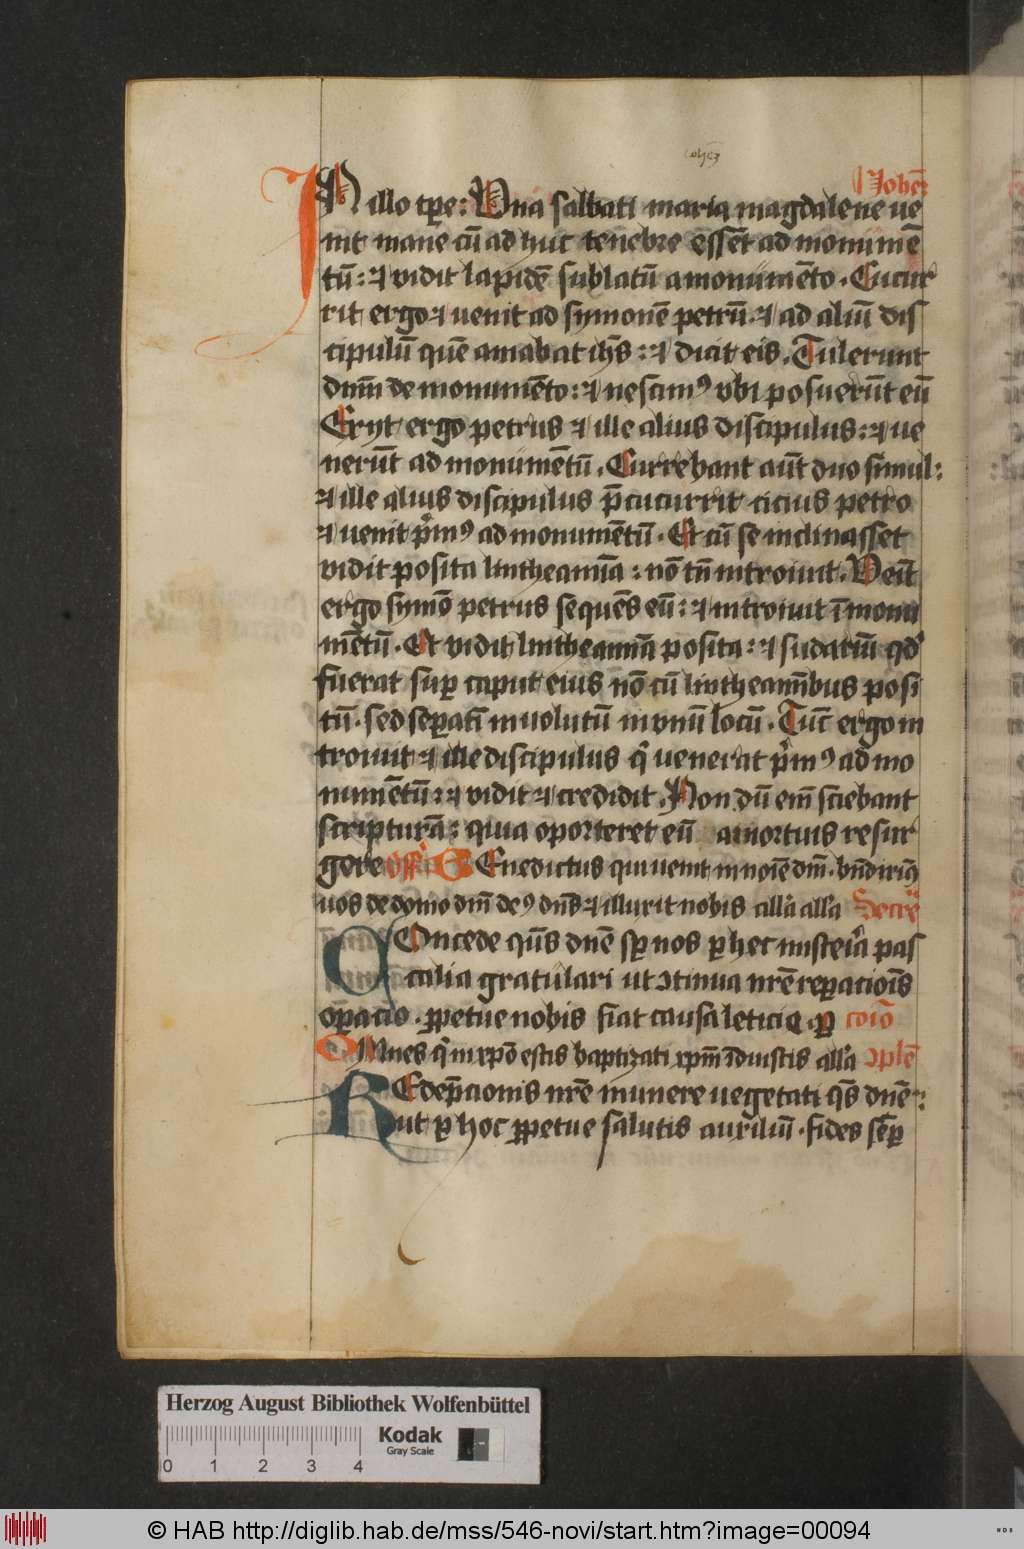 Johēs
IN illo tꝑe: Una sabbati maria magdalene ue
nit mane cū ad huc tenebre essēt ad monumē
tū: ⁊ vidit lapidē sublatū a monumēto. Cucur
rit ergo ⁊ uenit ad symonē petrū. ⁊ ad aliū dis
cipulū quē amabat ihs̄: ⁊ dicit eis. Tulerunt
dnm̄ de monumēto: ⁊ nescimꝰ vbi posuerūt eū
Exyt ergo petrus ⁊ ille alius discipulus: ⁊ ue
nerūt ad monumētū. Currebant aūt duo simul:
⁊ ille alius discipulus p̄cucurrit cicius petro
⁊ uenit pͥmꝰ ad monumētū. Et cū se inclinasset
vidit posita lintheamīa: nō tn̄ introiuit. Ueīt
ergo symō petrus sequēs eū: ⁊ introiuit ī monu
mētū. Et vidit lintheamīa posita: ⁊ sudariū qđ
fuerat suꝑ caput eius nō cū lintheamībus posi
tū. sed seꝑatī inuolutū in vnū locū. Tūc ergo in
troiuit ⁊ ille discipulus qͥ uenerat pͥmꝰ ad mo
numētū: ⁊ vidit ⁊ credidit. Non dū em̄ sciebant
scripturā: quia oporteret eū a mortuis resur
gere Off̄ Benedictus qui uenit in noīe dnī. bn̄diximꝰ
uos de domo dnī deꝰ dns̄ ⁊ illuxit nobis all'a all'a Secrē
COncede qs̄ dnē sꝑ nos ꝑ hec misteria pas
calia gratulari ut ↄtinua nrē reꝑacioīs
oꝑacio. ꝑpetue nobis fiat causa leticie. ꝑ coīo
OMnes qͥ in xpō estis baptizati xpm̄ īduistis all'a ↄplē
REdēpcionis nrē munere uegetati qs̄ dnē:
ut ꝑ hoc ꝑpetue salutis auxiliū. fides sēꝑ
Herzog August Bibliothek Wolfenbüttel
Kodak
Gray Scale
0 1 2 3 4
© HAB http://diglib.hab.de/mss/546-novi/start.htm?image=00094